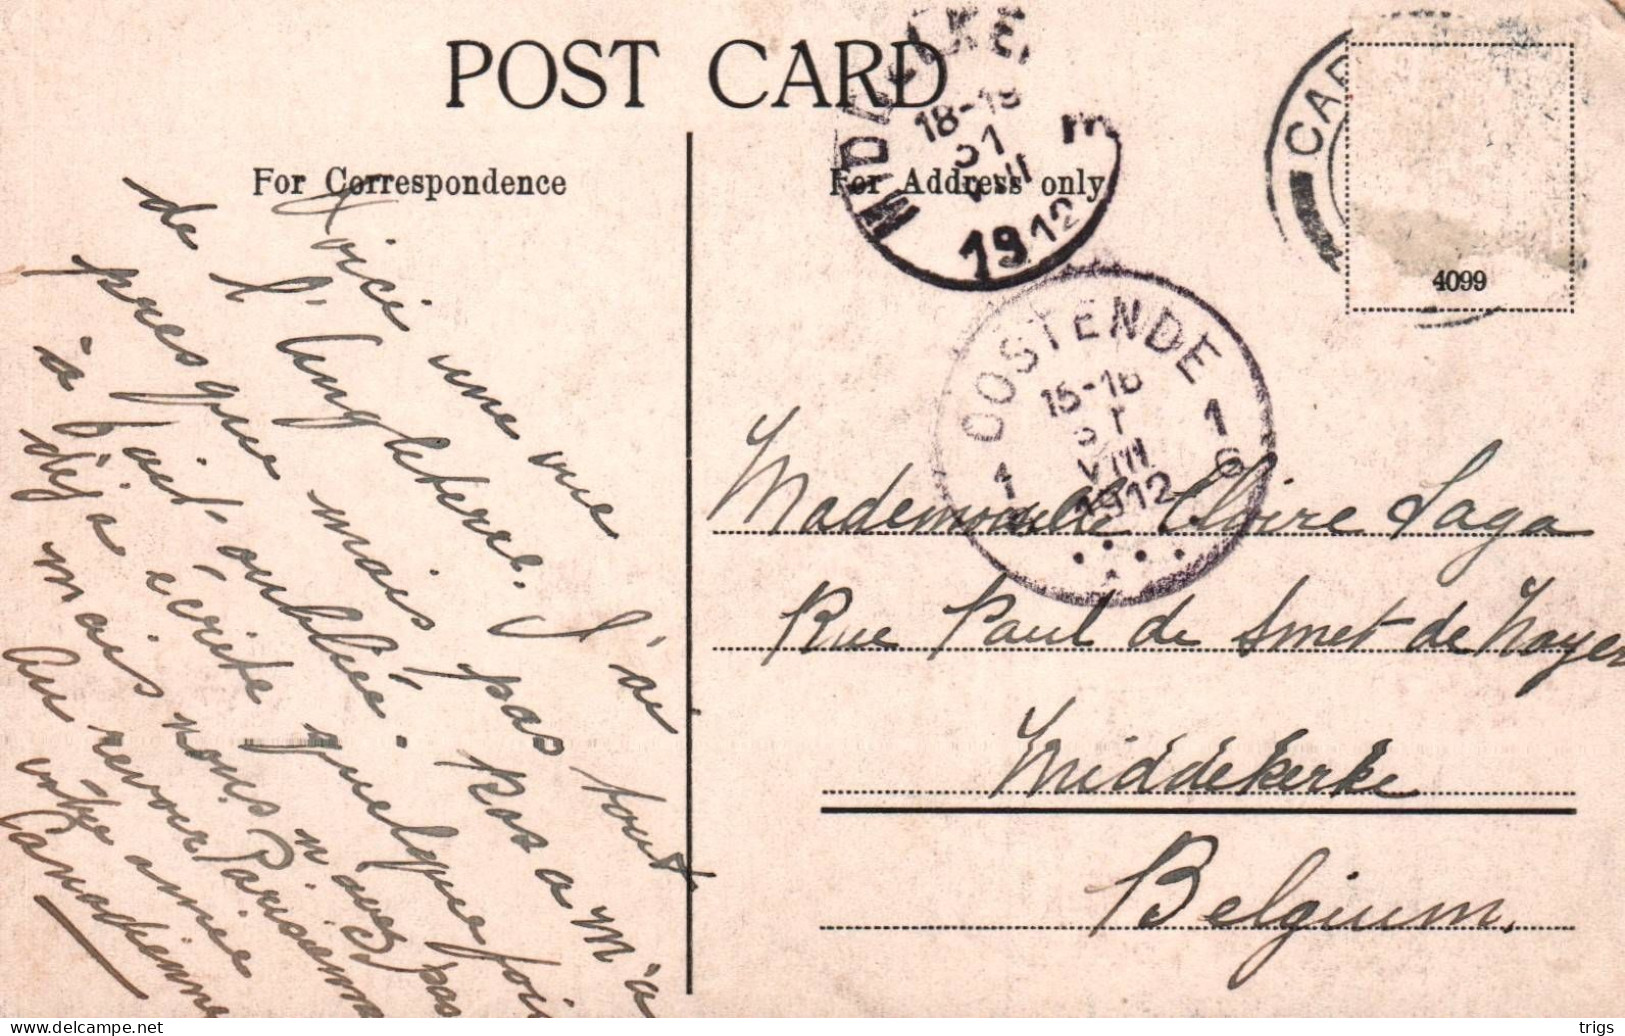 POST CARD
For Correspondence
For Address only
MIDDELKERKE
18-19
31
VIII
1912
CAR
4099
OOSTENDE
15-16
31
VIII
1912
1
1
6
Voici une vue
de l'Angleterre. J'ai
presque mais pas tout
à fait oublié. Rosa m'a
déja écrite quelque foi
mais nous n'avez pas
Au revoir Parisienne
votre amie
Canadienne
Mademoiselle Claire Saga
Rue Paul de Smet de Nayer
Middekerke
Belgium.
trigs